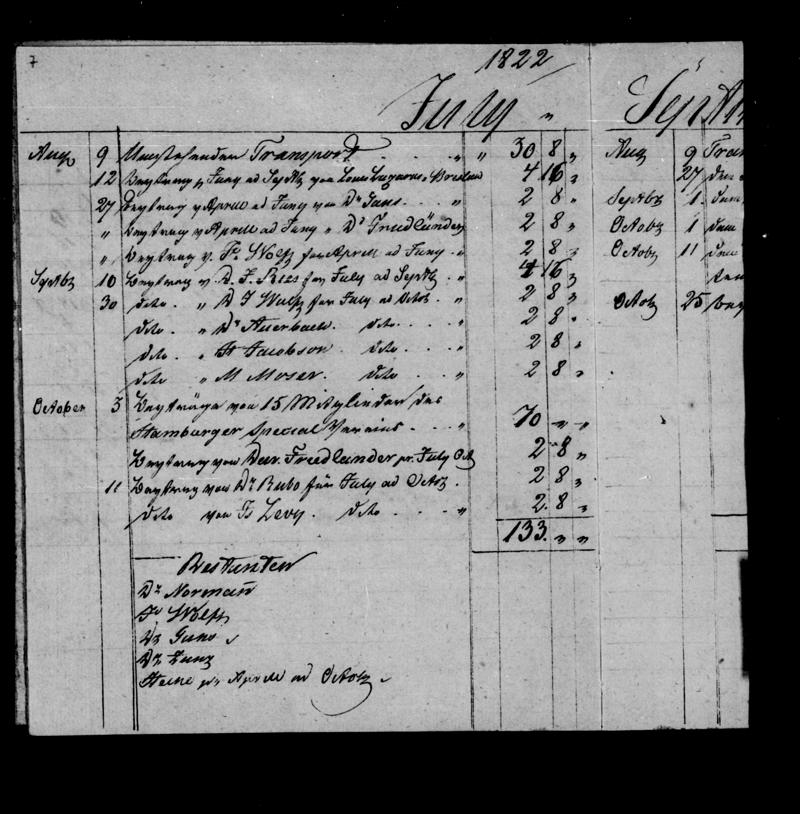 7
1822
July "
Septem
Aug 9 Umstehender Transport . . . " " 30 8 "
12 Beytrag p Juny ad Septb von Louis Lazarus Breslau 4 16 "
27 Beytrag p Aprill ad Juny von Dr Gans . . " 2 8 "
" Beytrag p Aprill ad Juny " D. Friedländer 2 8 "
" Beytrag v. Wolff für Aprill ad Juny . " 2 8 "
Septb 10 Beytrag v. D. J. Ries für July ad Septb . " 4 16 "
30 dito . " D J Wulff für July ad Octob . " 2 8 "
dito . " Dr Auerbach . dito . . . " 2 8 "
dito . " Jacobson . dito . . . " 2 8 "
dito " M Moser . dito . . . " 2 8 "
October 3 Beyträge von 15 Mitglieder des
Hamburger Special Vereins . . . " 70 " "
Beytrag von Dav. Friedlander pr. July Oct 2 8 "
11 Beytrag von Dr Rubo für July ad Octob . 2 8 "
dito von Levy . dito . . . " 2 8 "
133 " "
Restanten
Dr Normann
Wolff
Dr Gans
Dr Zunz
Heine pr Aprill ad Octob
Aug 9 Tran
27 dem
Septbr 1 dem
Octobr 1 dem
Octobr 11 dem
Octob 25